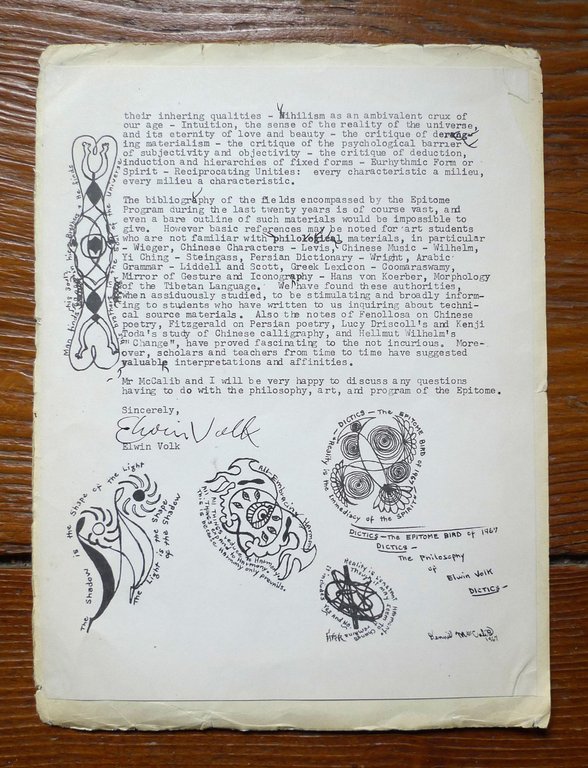 their inhering qualities - Nihilism as an ambivalent crux of
our age - Intuition, the sense of the reality of the universe,
and its eternity of love and beauty - the critique of derang-
ing materialism - the critique of the psychological barrier
of subjectivity and objectivity - the critique of deduction,
induction and hierarchies of fixed forms - Eurhythmic Form or
Spirit - Reciprocating Unities: every characteristic a milieu,
every milieu a characteristic.
The bibliography of the fields encompassed by the Epitome
Program during the last twenty years is of course vast, and
even a bare outline of such materials would be impossible to
give. However basic references may be noted for art students
who are not familiar with philological materials, in particular
- Wieger, Chinese Characters - Levis, Chinese Music - Wilhelm,
Yi Ching - Steingass, Persian Dictionary - Wright, Arabic
Grammar - Liddell and Scott, Greek Lexicon - Coomaraswamy,
Mirror of Gesture and Iconography - Hans von Koerber, Morphology
of the Tibetan Language. We have found these authorities,
when assiduously studied, to be stimulating and broadly inform-
ing to students who have written to us inquiring about techni-
cal source materials. Also the notes of Fenollosa on Chinese
poetry, Fitzgerald on Persian poetry, Lucy Driscoll's and Kenji
Toda's study of Chinese calligraphy, and Hellmut Wilhelm's
"Change", have proved fascinating to the not incurious. More-
over, scholars and teachers from time to time have suggested
valuable interpretations and affinities.
Mr McCalib and I will be very happy to discuss any questions
having to do with the philosophy, art, and program of the Epitome.
Sincerely,
Elwin Volk
Elwin Volk
Man holds the
of the Universe
DICTICS - The EPITOME BIRD of 1967
"Reality is the Immediacy of the SPIRIT"
The Shadow is the Shape of the Light
The Light is the Shape of the Shadow
All-Embracing Harmony
All Things
Harmony only prevails.
DICTICS - The EPITOME BIRD of 1967
DICTICS -
The Philosophy
of
Elwin Volk
DICTICS -
Reality is constant Harmony.
1967